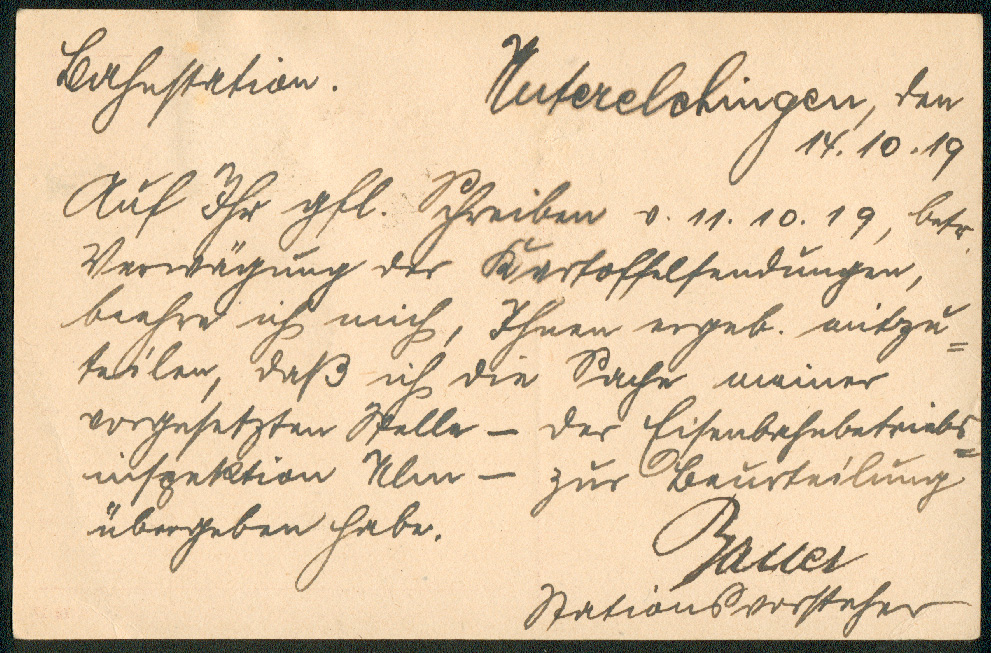 Bahnstation.
Unterelchingen, den
14.10.19
Auf Ihr gfl. Schreiben v. 11.10.19, betr.
Verwägung der Kartoffelsendungen,
beehre ich mich, Ihnen ergeb. mitzu=
teilen, daß ich die Sache meiner
vorgesetzten Stelle – der Eisenbahnbetriebs=
inspektion Ulm – zur Beurteilung
übergeben habe.
Bauer
Stationsvorsteher